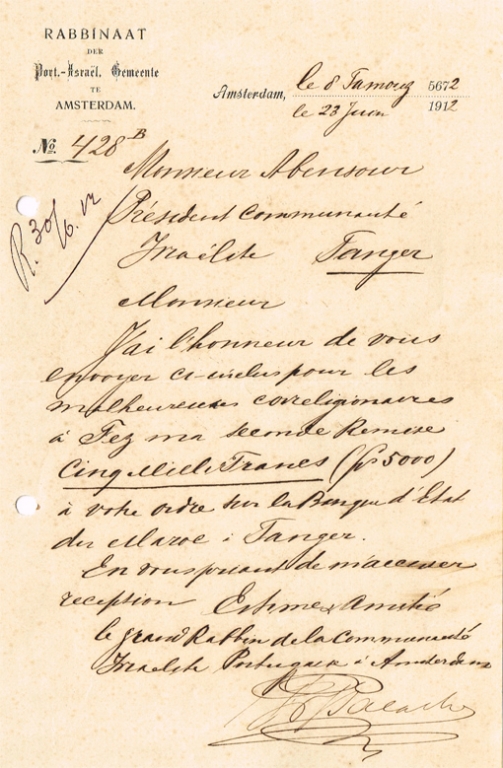 RABBINAAT
DER
Port.-Israël. Gemeente
TE
AMSTERDAM.
Amsterdam, le 8 Tamouz 5672
le 23 Juin 1912
No. 428 B
R. 30/6.12
Monsieur Abensour
Président Communauté
Israélite Tanger
Monsieur
J'ai l'honneur de vous
envoyer ci-inclus pour les
malheureux coreligionaires
à Fez ma seconde Remise
Cinq Mille Francs (frs 5000)
à votre ordre sur la Banque d'Etat
du Maroc à Tanger.
En vous priant de m'accuser
reception Estime & Amitié
le grand Rabbin de la Communauté
Israelite Portugaise à Amsterdam
Palache